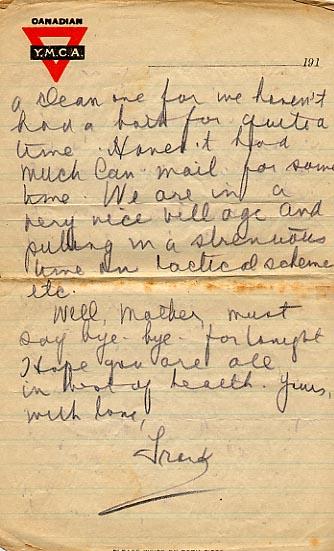 CANADIAN
Y.M.C.A.
191
a clean one for we haven't
had a bath for quite a
time. Haven't had
much Can mail for some
time. We are in a
very nice village and
putting in a strenuous
time on tactical scheme
etc.
Well, Mother, must
say bye-bye for tonight
Hope you are all
in best of health. Yours,
with love,
Frank